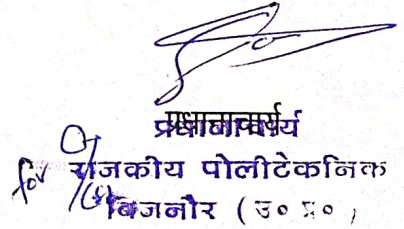 प्रधानाचार्य
for राजकीय पोलीटेकनिक
बिजनौर ( उ० प्र० )